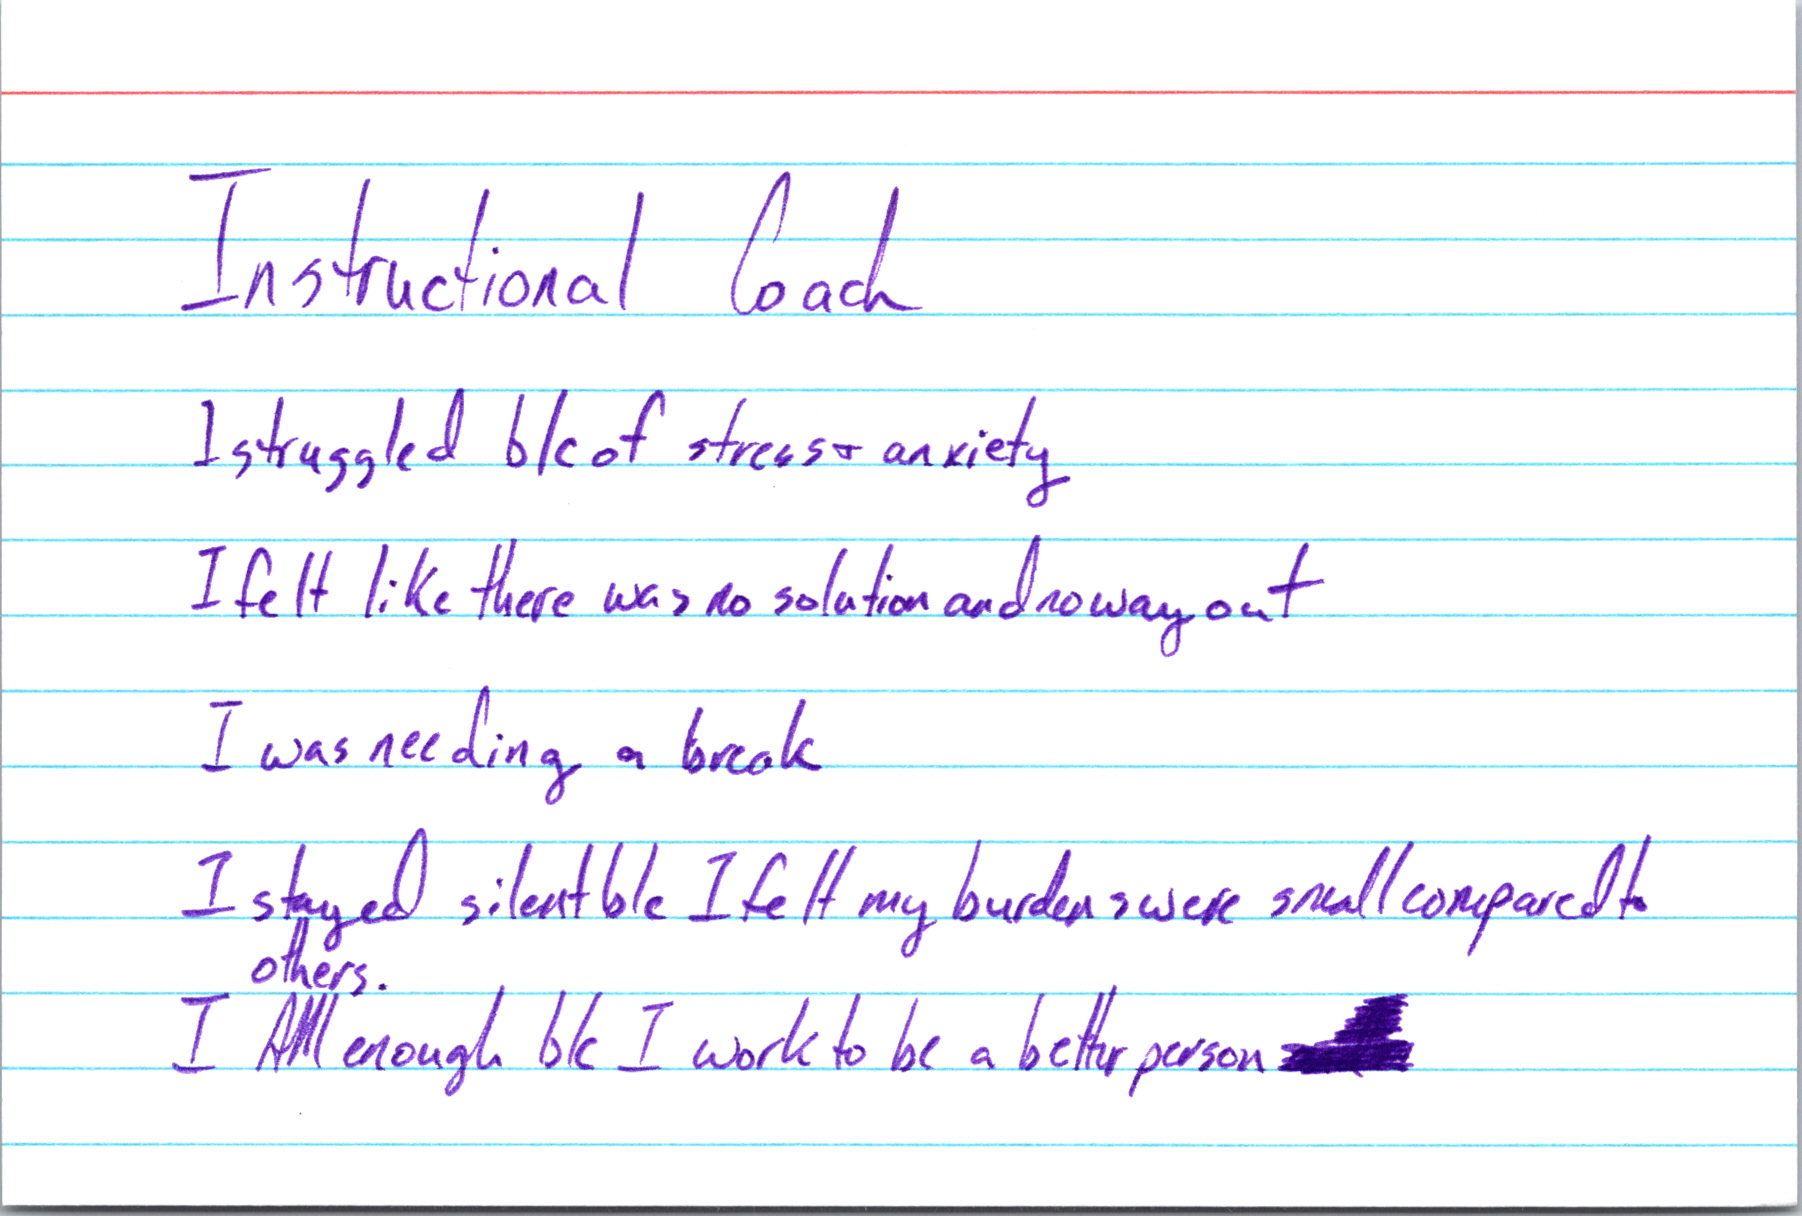 Instructional Coach
I struggled b/c of stress + anxiety
I felt like there was no solution and no way out
I was needing a break
I stayed silent b/c I felt my burdens were small compared to
others.
I AM enough b/c I work to be a better person